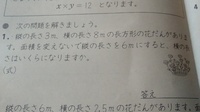 x×y=12 となります。
● 次の問題を解きましょう。
1. 縦の長さ3m、横の長さ8mの長方形の花だんがあります。
面積を変えないで縦の長さ6mにすると、横の長
さはいくらになりますか。
(式)
答え
縦の長さ6m、横の長さ2.5mの花だんがあります。